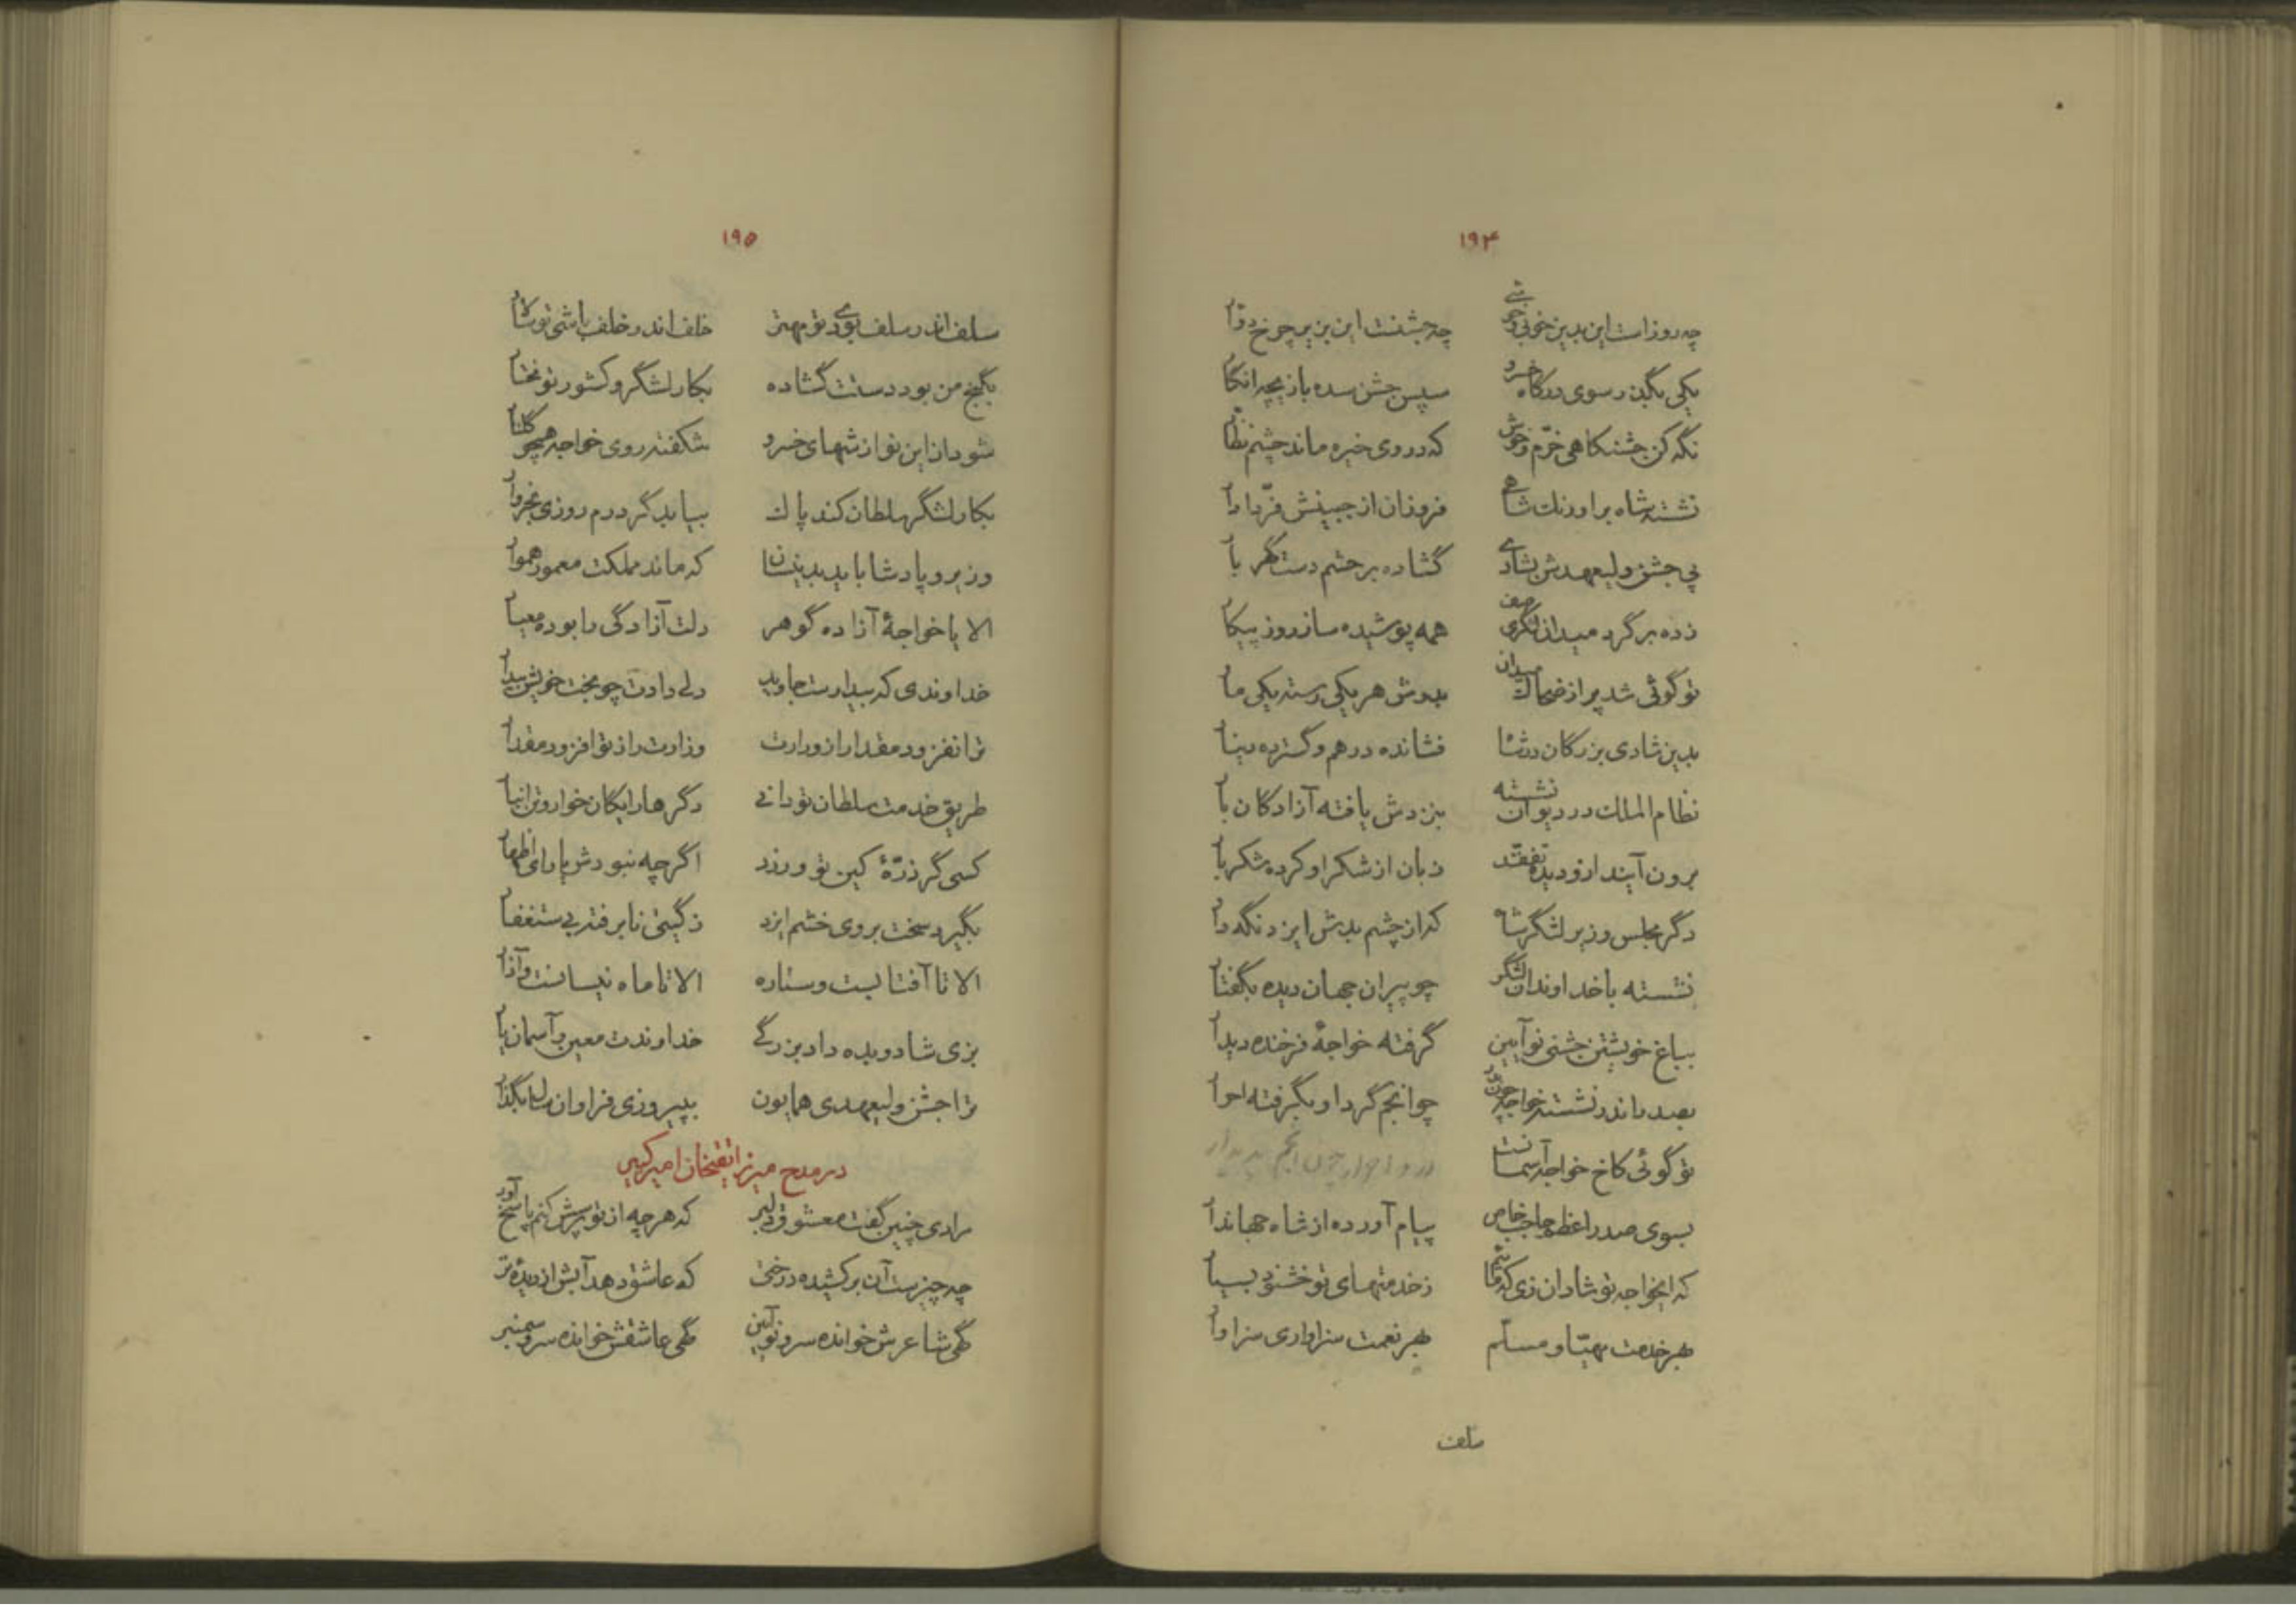 ۱۹۴
چه روز است این بدین خوبی و خوشی چه جشنست این بزیر چرخ دوار
یکی بگذر سوی درگاه خسرو سپس جشن سده بازیچه انگار
نگه کن جشنگاهی خرّم و خوش که در وی خیره ماند چشم نظار
نشسته شاه بر اورنگ شاهی فروزان از جبینش فرّ دادار
پی جشن ولیعهدش بشادی گشاده بر حشم دست گهر بار
زده بر گرد میدان لشگری صف همه پوشیده ساز روز پیکار
تو گوئی شد پر از ضحاک میدان بدوش هر یکی رسته یکی مار
بدین شادی بزرگان در شه فشانده درهم و گسترده دینار
نظام الملک در دیوان نشسته بنزدش یافته آزادگان بار
برون آیند ازو دیده تفقّد زبان از شکر او کرده شکربار
دگر مجلس وزیر لشگر شاه که از چشم بدش ایزد نگه دار
نشسته با خداوندان لشگر چو پیران جهان دیده بگفتار
بباغ خویشتن جشنی نو آیین گرفته خواجهٔ فرخنده دیدار
بصدر اندر نشسته خواجه چون بدر چو انجم گرد او بگرفته احرار
تو گوئی کاخ خواجه آسمانست در و احرار چون انجم پدیدار
بسوی صدر اعظم حاجب خاص پیام آورده از شاه جهاندار
که ایخواجه تو شادان زی که مائیم ز خدمتهای تو خشنود بسیار
بهر خدمت مهیّا و مسلّم بهر نعمت سزاواری سزاوار
سلف
۱۹۵
سلف اندر سلف بودی تو مهتر خلف اندر خلف باشی تو سالار
بگنج من بود دستت گشاده بکار لشگر و کشور تو مختار
شود از این نوازشهای خسرو شکفته روی خواجه همچو گلنار
بکار لشگر سلطان کند پاک بیابد گر درم روزی بخروار
وزیر و پادشا باید بدینسان که ماند مملکت معمور هموار
الا یا خواجهٔ آزاده گوهر دلت آزادگی را بوده معیار
خداوندی که بیدارست جاوید دلی دادت چو بخت خویش بیدار
ترا نفزود مقدار از وزارت وزارت را ز تو افزود مقدار
طریق خدمت سلطان تو دانی دگرها رایگان خوار و تن انبار
کسی گر ذرّهٔ کین تو ورزد اگر چه نبودش یارای اظهار
بگیرد سخت بر وی خشم ایزد ز گیتی نابرفته بی ستغفار
الا تا آفتابست و ستاره الا تا ماه نیسانست و آذار
بزی شاد و بده داد بزرگی خداوندت معین و آسمان یار
ترا جشن ولیعهدی همایون بپیروزی فراوان سال بگذار
در مدح میرزا تقیخان امیرکبیر
مرا دی چنین گفت معشوق دلبر که هر چه از تو پرسش کنم پاسخ آور
چه چیزست آن برکشیده درختی که عاشق دهد آبش از دیدهٔ تر
گهی شاعرش خوانده سرو نو آئین گهی عاشقش خوانده سرو سمنبر